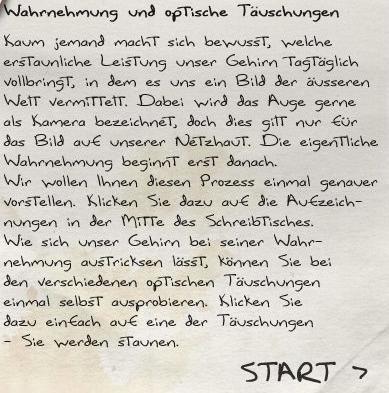 Wahrnehmung und optische Täuschungen
Kaum jemand macht sich bewusst, welche
erstaunliche Leistung unser Gehirn tagtäglich
vollbringt, in dem es uns ein Bild der äusseren
Welt vermittelt. Dabei wird das Auge gerne
als Kamera bezeichnet, doch dies gilt nur für
das Bild auf unserer Netzhaut. Die eigentliche
Wahrnehmung beginnt erst danach.
Wir wollen Ihnen diesen Prozess einmal genauer
vorstellen. Klicken Sie dazu auf die Aufzeich-
nungen in der Mitte des Schreibtisches.
Wie sich unser Gehirn bei seiner Wahr-
nehmung austricksen lässt, können Sie bei
den verschiedenen optischen Täuschungen
einmal selbst ausprobieren. Klicken Sie
dazu einfach auf eine der Täuschungen
- Sie werden staunen.
START >